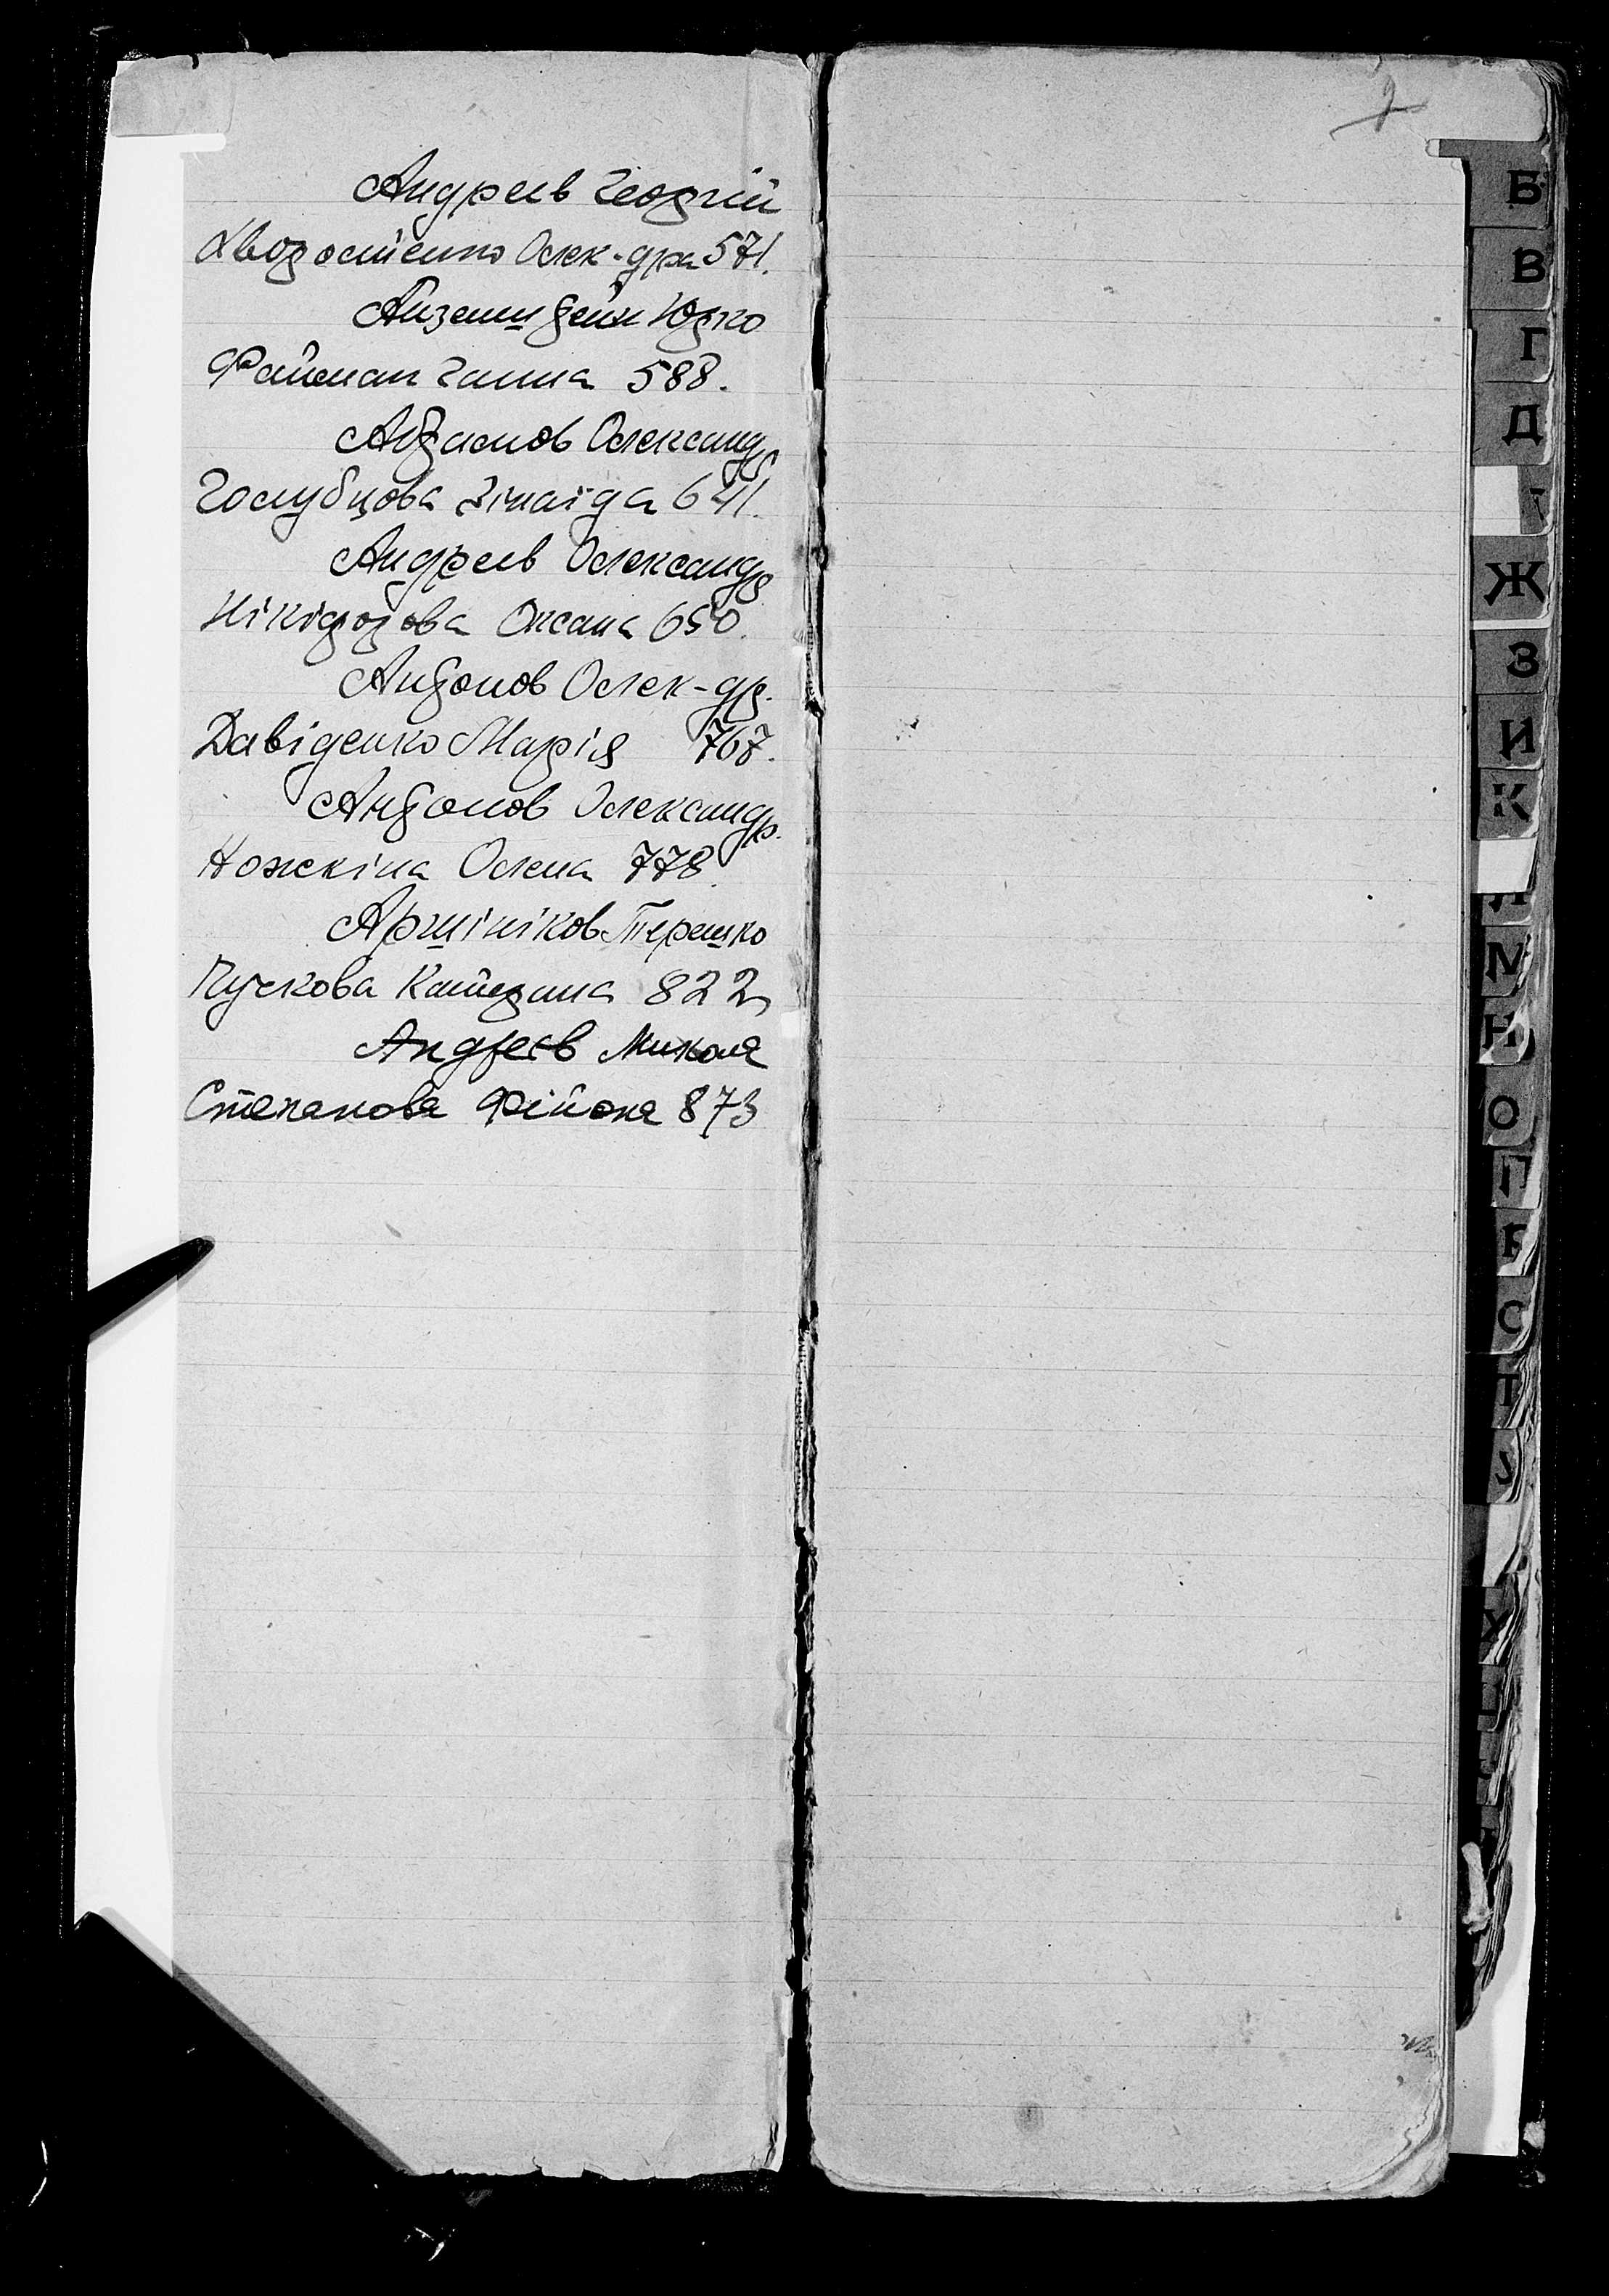 Андреєв Георгій
Хворостенко Олек-дра 571.
Айзенштейн Юрко
Файман Ганна 588.
Абрамов Олександр
Голубцова Зінаїда 641.
Андреєв Олександр
Нікіфорова Оксана 650.
Антонов Олек-др.
Давіденко Марія 767.
Антонов Олександр.
Ножкіна Олена 778.
Аршініков Терешко
Пучкова Катерина 822
Андреєв Микола
Степанова 873
Б
В
Г
Д
Ж
З
И
К
Л
М
Н
О
П
Р
С
Т
У
Х